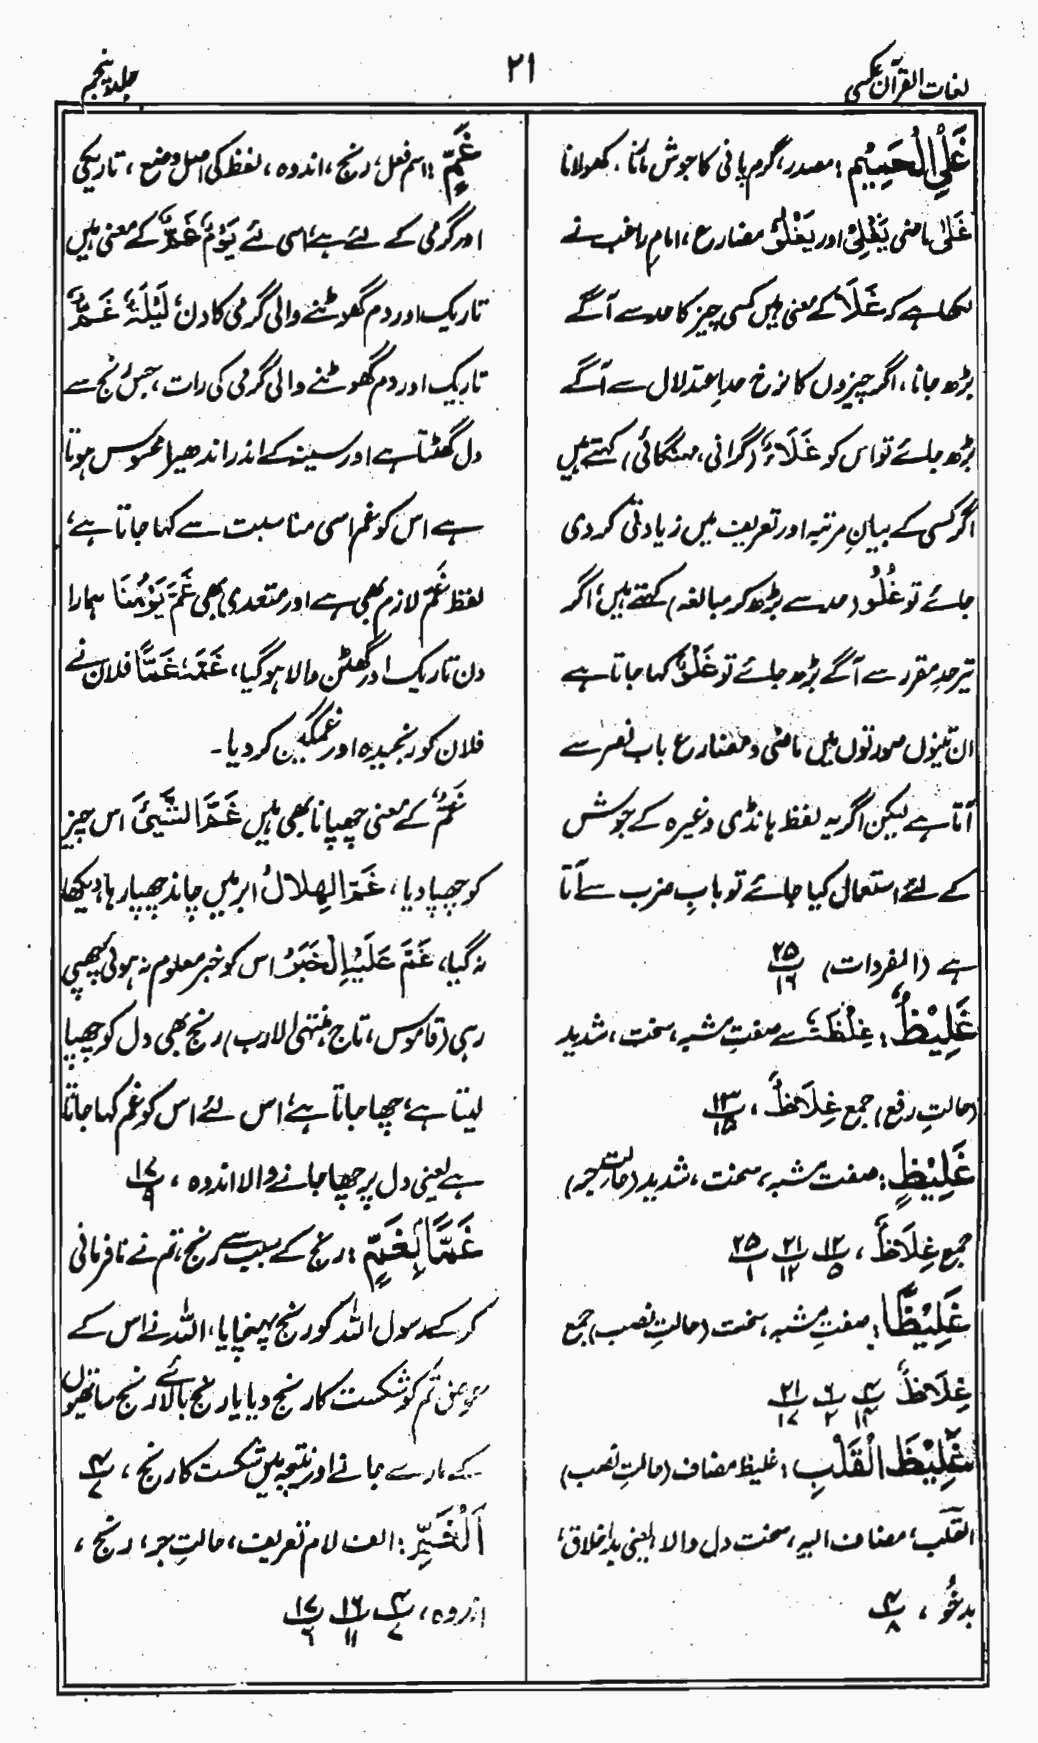 لغات القرآن عکسی
۲۱
جلد پنجم
غَلْیِ الْحَمِیْمِ: مصدر، گرم پانی کا جوش مارنا، کھولانا
غَلٰی ماضی یَغْلِیْ اور یَغْلُوْ مضارع، امام راغب نے
لکھا ہے کہ غَلَا کے معنی ہیں کسی چیز کا حد سے آگے
بڑھ جانا، اگر چیزوں کا نرخ حدِ اعتدال سے آگے
بڑھ جائے تو اس کو غَلَاءٌ (گرانی، مہنگائی) کہتے ہیں
اگر کسی کے بیانِ مرتبہ اور تعریف میں زیادتی کر دی
جائے تو غُلُوٌّ (حد سے بڑھ کر مبالغہ) کہتے ہیں، اگر
تیر حدِ مقرر سے آگے بڑھ جائے تو غَلْوٌ کہا جاتا ہے
ان تینوں صورتوں میں ماضی و مضارع باب نصر سے
آتا ہے لیکن اگر یہ لفظ ہانڈی وغیرہ کے جوش
کے لئے استعمال کیا جائے تو بابِ ضرب سے آتا
ہے (المفردات) ۲۵/۱۶
غَلِیْظٌ: غِلْظَۃٌ سے صفتِ مشبہ، سخت، شدید
(حالتِ رفع) جمع غِلَاظٌ، ۱۳/۱۵
غَلِیْظٍ: صفت مشبہ، سخت، شدید (حالتِ جر)
جمع غِلَاظٌ، ۱۲/۵ ۲۱/۱۲ ۲۵/۱
غَلِیْظًا: صفتِ مشبہ، سخت (حالتِ نصب) جمع
غِلَاظٌ ۴/۱۴ ۶/۲ ۲۱/۱۷
غَلِیْظَ الْقَلْبِ: غلیظ مضاف (حالتِ نصب)
القلب، مضاف الیہ، سخت دل والا (یعنی بداخلاق،
بدخُو، ۴/۸
غَمٍّ: اسم فعل، رنج، اندوہ، لفظ کی اصل وضع، تاریکی
اور گرمی کے لئے ہے، اسی لئے یَوْمٌ غَمٌّ کے معنی ہیں
تاریک اور دم گھوٹنے والی گرمی کا دن، لَیْلَۃٌ غَمٌّ
تاریک اور دم گھوٹنے والی گرمی کی رات، جس رنج سے
دل گھٹتا ہے اور سینہ کے اندر اندھیرا محسوس ہوتا
ہے اس کو غم اسی مناسبت سے کہا جاتا ہے،
لفظ غَمّ لازم بھی ہے اور متعدی بھی غَمَّ یَوْمُنَا ہمارا
دن تاریک اور گھٹن والا ہو گیا، غَمَّہٗ غَمًّا فلان نے
فلان کو رنجیدہ اور غمگین کر دیا۔
غَمٌّ کے معنی چھپانا بھی ہیں غَمَّ الشَّیْئَ اس چیز
کو چھپا دیا، غَمَّ الْهِلَالُ ابر میں چاند چھپا رہا، دیکھا
نہ گیا، غَمَّ عَلَیْہِ الْخَبَرُ اس کو خبر معلوم نہ ہوئی چھپی
رہی (قاموس، تاج، منتہی الارب) رنج بھی دل کو چھپا
لیتا ہے، چھا جاتا ہے، اس لئے اس کو غم کہا جاتا
ہے یعنی دل پر چھا جانے والا اندوہ، ۱۷/۹
غَمًّا بِغَمٍّ: رنج کے سبب سے رنج، تم نے نافرمانی
کر کے رسول اللہ کو رنج پہنچایا، اللہ نے اس کے
عوض تم کو شکست کا رنج دیا یا رنج بالائے رنج ساتھیوں
کے مارے جانے اور نتیجہ میں شکست کا رنج، ۴/۷
اَلْغَمِّ: الف لام تعریف، حالتِ جر، رنج،
اندوہ، ۴/۷ ۱۶/۱۱ ۱۷/۶